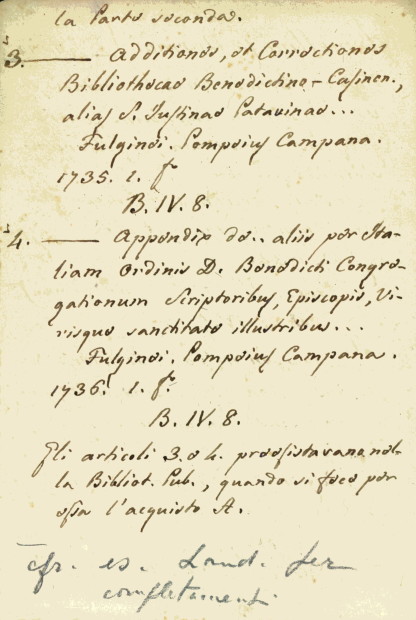 la Parte seconda.
3. —— Additiones, et Correctiones
Bibliothecae Benedictino-Casinen.,
alias S. Iustinae Patavinae...
Fulginei. Pompeius Campana.
1735. 1. f.
B. IV. 8.
4. —— Appendix de.. aliis per Ita-
liam Ordinis D. Benedicti Congre-
gationum Scriptoribus, Episcopis, Vi-
risque sanctitate illustribus...
Fulginei. Pompeius Campana.
1736. 1. f.
B. IV. 8.
Gli articoli 3. e 4. preesistevano nel-
la Bibliot. Pub., quando si fece per
essa l'acquisto A.
cfr. es. Laud. per
completamenti.